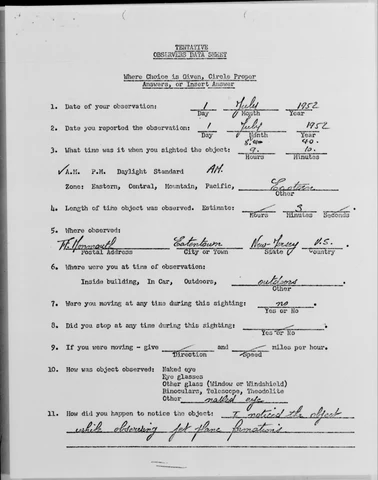 TENTATIVE
OBSERVERS DATA SHEET
Where Choice is Given, Circle Proper
Answers, or Insert Answer
1. Date of your observation: 1 July 1952
Day Month Year
2. Date you reported the observation: 1 July 1952
Day Month Year
3. What time was it when you sighted the object: 9. 10.
Hours Minutes
✓A.M. P.M. Daylight Standard AM.
Zone: Eastern, Central, Mountain, Pacific, Eastern
Other
4. Length of time object was observed. Estimate: 3
Hours Minutes Seconds
5. Where observed:
Ft. Monmouth Eatontown New-Jersey U.S.
Postal Address City or Town State Country
6. Where were you at time of observation:
Inside building, In Car, Outdoors, outdoors
Other
7. Were you moving at any time during this sighting: no
Yes or No
8. Did you stop at any time during this sighting:
Yes or No
9. If you were moving - give and miles per hour.
Direction Speed
10. How was object observed: Naked eye
Eye glasses
Other glass (Window or Windshield)
Binoculars, Telescope, Theodolite
Other naked eye
11. How did you happen to notice the object: I noticed the object
while observing jet plane formations